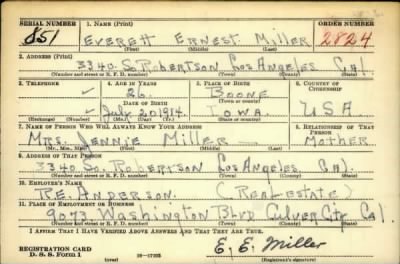 SERIAL NUMBER 1. NAME (Print) ORDER NUMBER
851 Everett Ernest Miller 2824
(First) (Middle) (Last)
2. ADDRESS (Print)
3340 So. Robertson Los Angeles Cal.
(Number and street or R. F. D. number) (Town) (County) (State)
3. TELEPHONE 4. AGE IN YEARS 5. PLACE OF BIRTH 6. COUNTRY OF CITIZENSHIP
26 Boone
DATE OF BIRTH (Town or county)
July 20 1914 Iowa USA
(Exchange) (Number) (Mo.) (Day) (Yr.) (State or country)
7. NAME OF PERSON WHO WILL ALWAYS KNOW YOUR ADDRESS 8. RELATIONSHIP OF THAT PERSON
Mrs. Jennie Miller Mother
(Mr., Mrs., Miss) (First) (Middle) (Last)
9. ADDRESS OF THAT PERSON
3340 So. Robertson Los Angeles Cal.
(Number and street or R. F. D. number) (Town) (County) (State)
10. EMPLOYER'S NAME
R.E. Anderson (Real-estate)
11. PLACE OF EMPLOYMENT OR BUSINESS
9073 Washington Blvd Culver City Cal.
(Number and street or R. F. D. number) (Town) (County) (State)
I AFFIRM THAT I HAVE VERIFIED ABOVE ANSWERS AND THAT THEY ARE TRUE.
E. E. Miller
REGISTRATION CARD
D. S. S. Form 1 (over) 16—17105 (Registrant's signature)